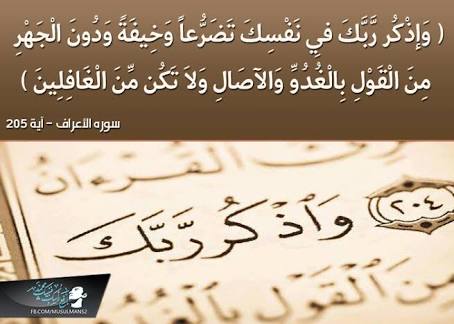 ( وَإذْكُر رَّبَّكَ فِي نَفْسِكَ تَضَرُّعاً وَخِيفَةً وَدُونَ الْجَهْرِ
مِنَ الْقَوْلِ بِالْغُدُوِّ وَالآصَالِ وَلاَ تَكُن مِّنَ الْغَافِلِينَ )
سوره الأعراف - آية 205
ٱلْقُرْءَانُ
٢٠٤
وَٱذْكُر رَّبَّكَ
مِنَ ٱلْقَوْلِ بِٱلْغُدُوِّ
FB.COM/MUSULMANS2